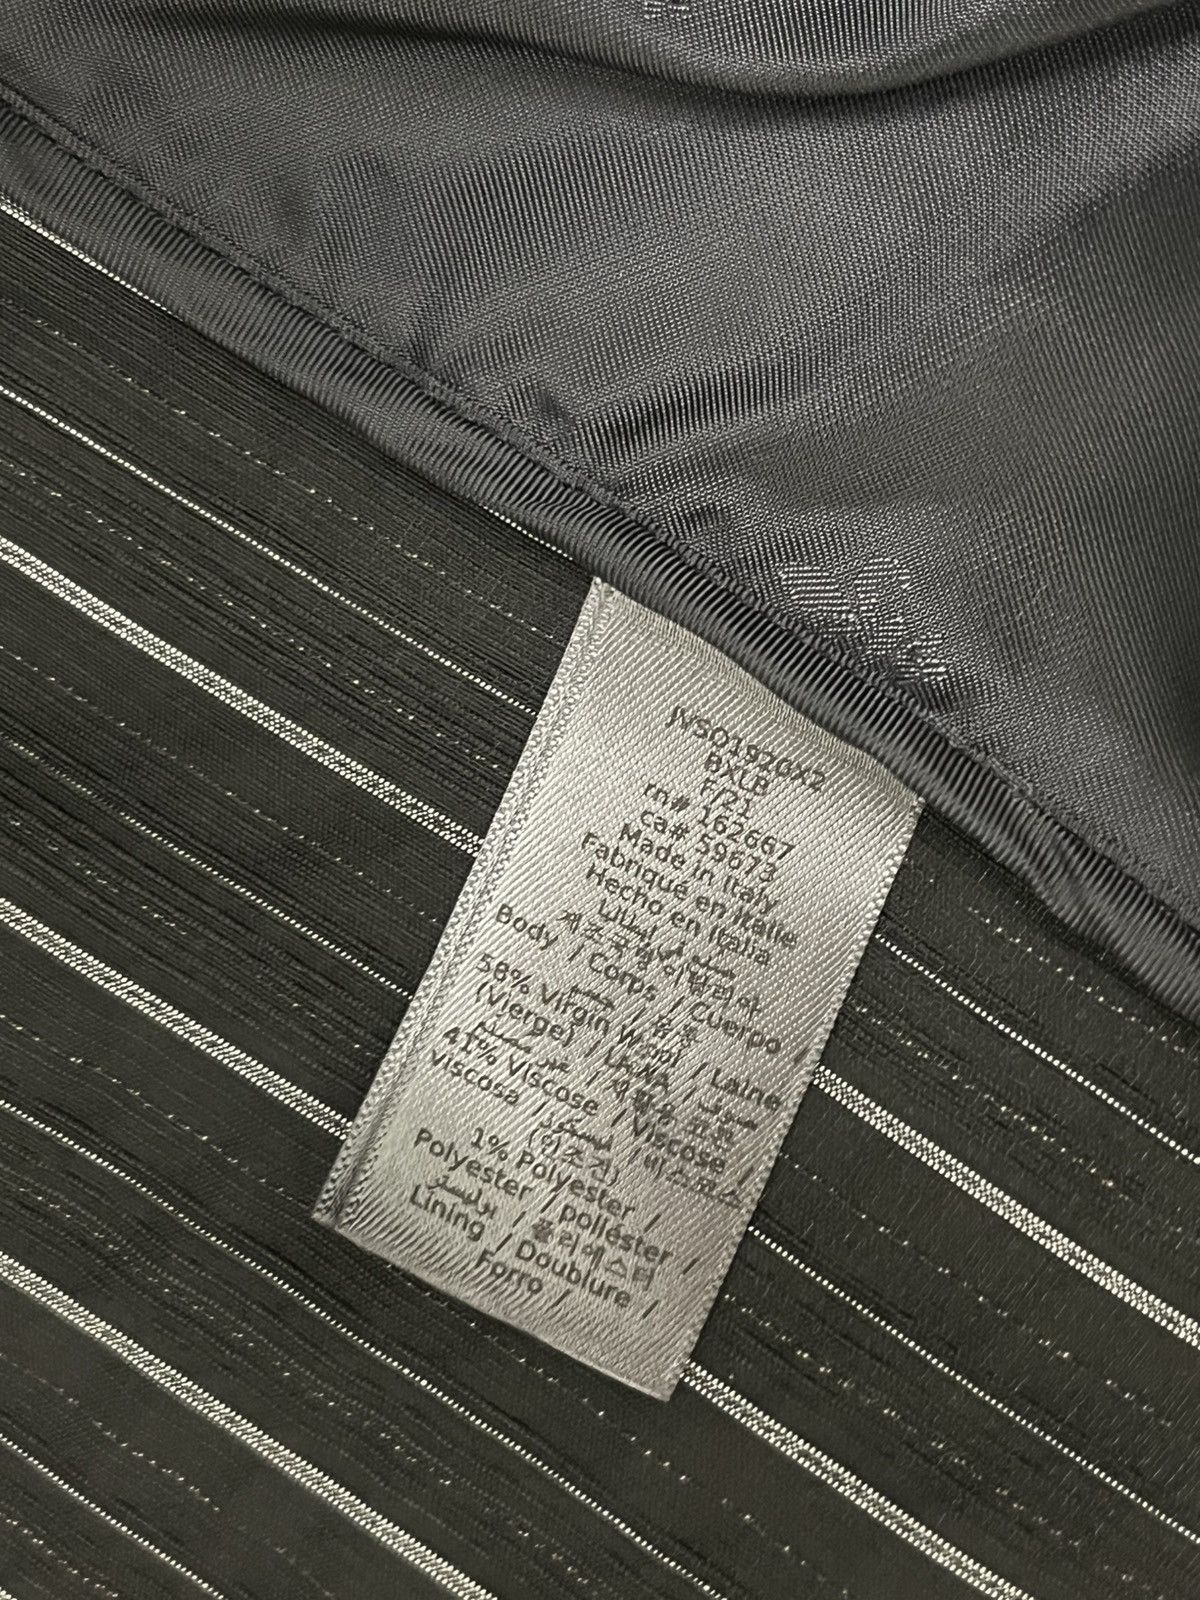 JVSO1920X2
BXLB
F/21
rn# 162667
ca# 59673
Made in Italy
Fabriqué en Italie
Hecho en Italia
صنع في إيطاليا
제조국명 이탈리아
Body / Corps / Cuerpo /
58% Virgin Wool / Laine
(Vierge) / LANA /
41% Viscose / Viscose /
Viscosa / 비스코스
1% Polyester /
Polyester / poliéster /
بوليستر / 폴리에스터
Lining / Doublure /
Forro /